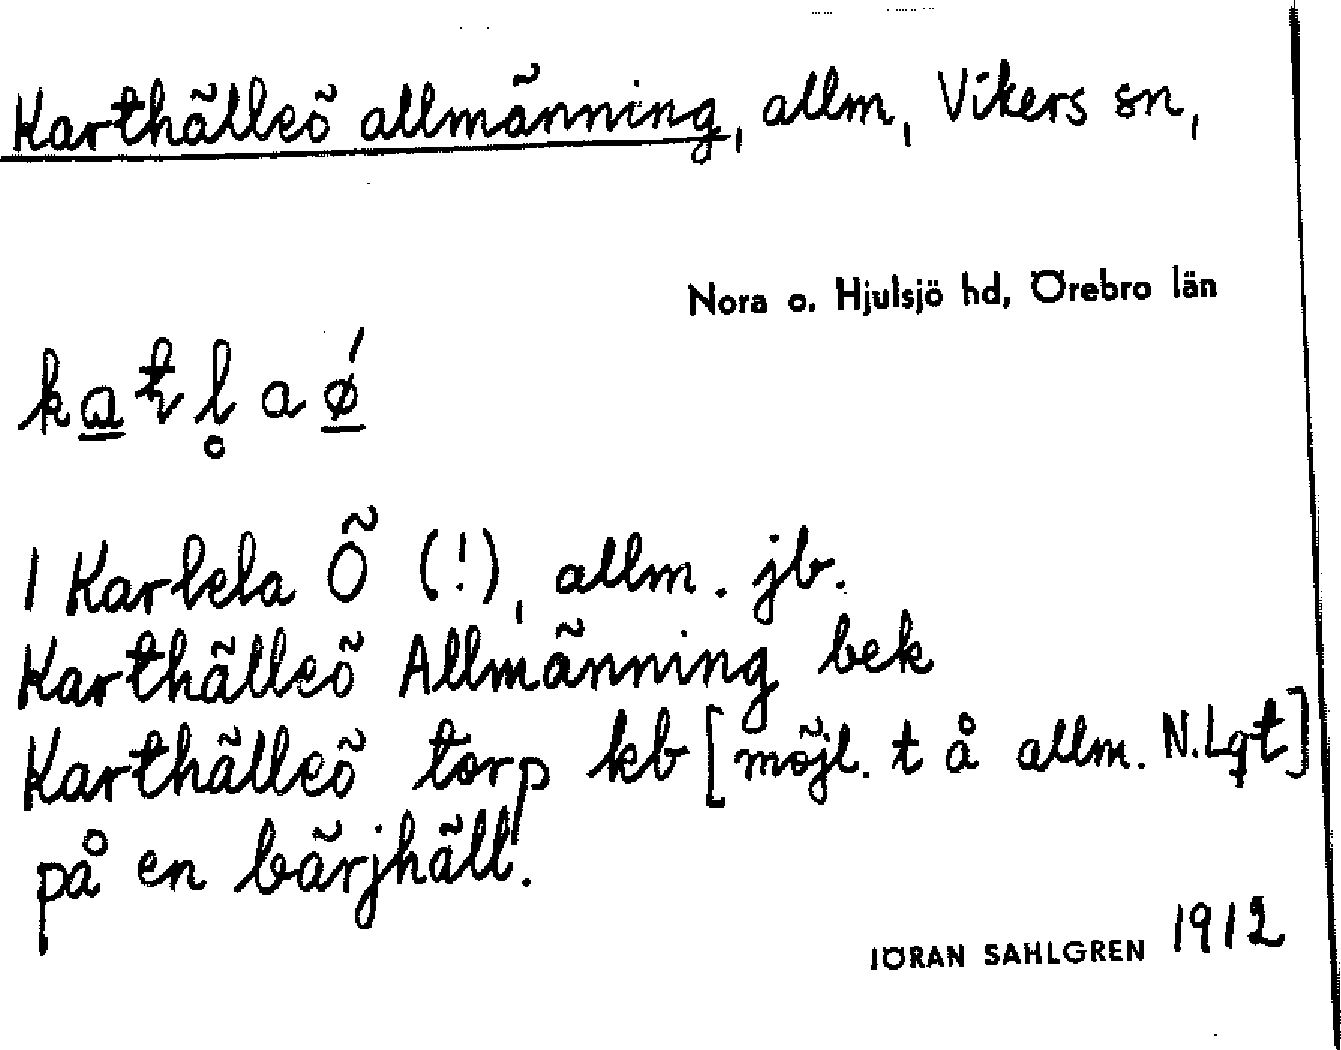 Karthälleö allmänning, allm, Vikers sn,
Nora o. Hjulsjö hd, Örebro län
1 Karlela Ö (!), allm. jb.
Karthälleö Allmänning bek
Karthälleö torp kb [möjl. t å allm. N.Lgt]
på en bärjhäll.
JÖRAN SAHLGREN 1912